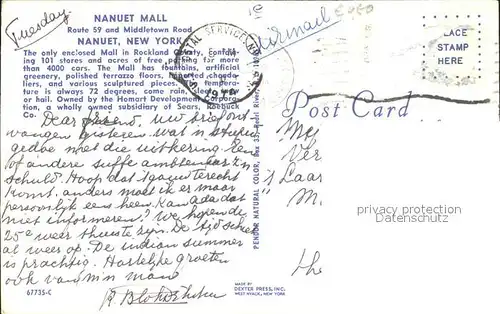 Tuesday
NANUET MALL
Route 59 and Middletown Road
NANUET, NEW YORK
The only enclosed Mall in Rockland County, contain-
ing 101 stores and acres of free parking for more
than 4000 cars. The Mall has fountains, artificial
greenery, polished terrazzo floors, imported chande-
liers, and various sculptured pieces. The tempera-
ture is always 72 degrees, come rain, sleet, snow
or hail. Owned by the Homart Development Corpora-
tion, a wholly owned subsidiary of Sears, Roebuck
Co.
POSTAL SERVICE, N.Y.
Airmail
PLACE
STAMP
HERE
Post Card
Dear, Uw brief ont-
vangen gisteren. wat 'n
gedoe met die uitkering. Een
of andere suffe ambtenaar z'n
schuld. Hoop dat 't gauw terecht
komt, anders moet ik er maar
persoonlijk eens heen. Kan ada dat
niet informeren? We hopen de
25e weer thuis te zijn. De tijd schiet
al weer op. De indian summer
is prachtig. Hartelijke groeten
ook van m'n man
't Laar
PENDOR NATURAL COLOR, Box 35, Pearl River, N.Y.
67735-C
MADE BY
DEXTER PRESS, INC.
WEST NYACK, NEW YORK
copyright protected
www.ansichtskarten-center.de